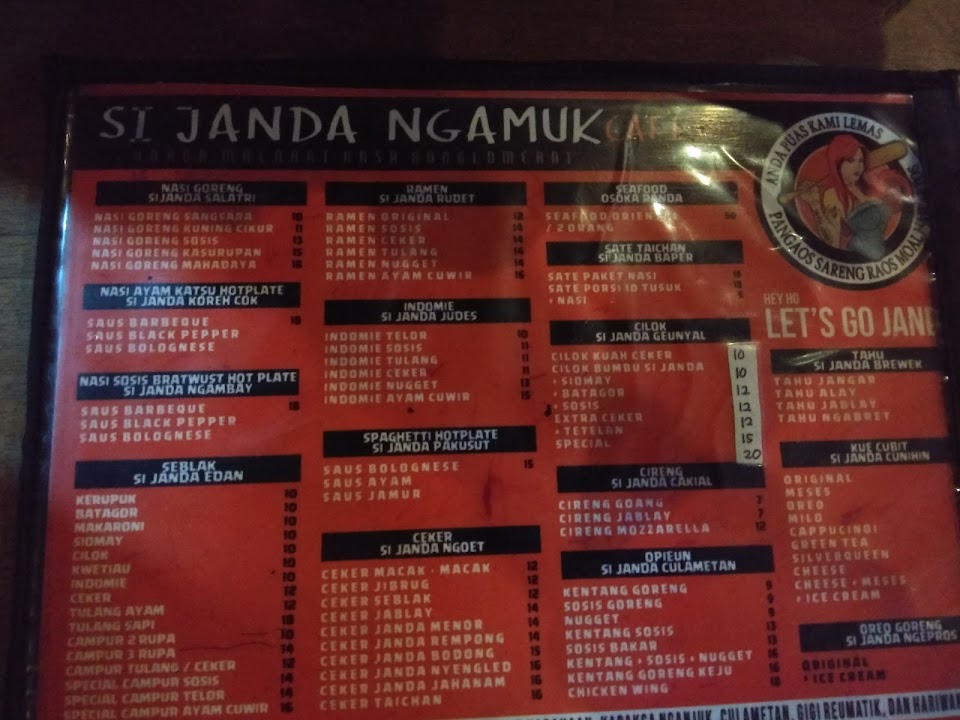 SI JANDA NGAMUK CAFE
HARGA MALARAT RASA KONGLOMERAT
NASI GORENG
SI JANDA SALATRI
NASI GORENG SANGSARA 10
NASI GORENG KUNING CIKUR 11
NASI GORENG SOSIS 13
NASI GORENG KASURUPAN 15
NASI GORENG MAHADAYA 16
NASI AYAM KATSU HOTPLATE
SI JANDA KOREH COK
SAUS BARBEQUE 18
SAUS BLACK PEPPER
SAUS BOLOGNESE
NASI SOSIS BRATWUST HOT PLATE
SI JANDA NGAMBAY
SAUS BARBEQUE 18
SAUS BLACK PEPPER
SAUS BOLOGNESE
SEBLAK
SI JANDA EDAN
KERUPUK 10
BATAGOR 10
MAKARONI 10
SIOMAY 10
CILOK 10
KWETIAU 10
INDOMIE 10
CEKER 12
TULANG AYAM 12
TULANG SAPI 18
CAMPUR 2 RUPA 10
CAMPUR 3 RUPA 14
CAMPUR TULANG / CEKER 12
SPECIAL CAMPUR SOSIS 14
SPECIAL CAMPUR TELOR 14
SPECIAL CAMPUR AYAM CUWIR 16
RAMEN
SI JANDA RUDET
RAMEN ORIGINAL 12
RAMEN SOSIS 14
RAMEN CEKER 14
RAMEN TULANG 14
RAMEN NUGGET 14
RAMEN AYAM CUWIR 16
INDOMIE
SI JANDA JUDES
INDOMIE TELOR 10
INDOMIE SOSIS 11
INDOMIE TULANG 11
INDOMIE CEKER 11
INDOMIE NUGGET 13
INDOMIE AYAM CUWIR 15
SPAGHETTI HOTPLATE
SI JANDA PAKUSUT
SAUS BOLOGNESE 15
SAUS AYAM
SAUS JAMUR
CEKER
SI JANDA NGOET
CEKER MACAK - MACAK 12
CEKER JIBRUG 12
CEKER SEBLAK 12
CEKER JABLAY 14
CEKER JANDA MENOR 14
CEKER JANDA REMPONG 14
CEKER JANDA BODONG 15
CEKER JANDA NYENGLED 16
CEKER JANDA JAHANAM 16
CEKER TAICHAN 16
SEAFOOD
OSOKA RANDA
SEAFOOD ORIENTAL 50
/ 2 ORANG
SATE TAICHAN
SI JANDA BAPER
SATE PAKET NASI 18
SATE PORSI 10 TUSUK 18
+ NASI 5
CILOK
SI JANDA GEUNYAL
CILOK KUAH CEKER 10
CILOK BUMBU SI JANDA 10
+ SIOMAY 12
+ BATAGOR 12
+ SOSIS 12
EXTRA CEKER
+ TETELAN 15
SPECIAL 20
CIRENG
SI JANDA CAKIAL
CIRENG GOANG 7
CIRENG JABLAY 7
CIRENG MOZZARELLA 12
OPIEUN
SI JANDA CULAMETAN
KENTANG GORENG 9
SOSIS GORENG 9
NUGGET 9
KENTANG SOSIS 13
SOSIS BAKAR 13
KENTANG + SOSIS + NUGGET 16
KENTANG GORENG KEJU 16
CHICKEN WING 16
ANDA PUAS KAMI LEMAS
PANGAOS SARENG RAOS MOAL
HEY HO
LET'S GO JAN
TAHU
SI JANDA BREWEK
TAHU JANGAR
TAHU ALAY
TAHU JABLAY
TAHU NGABRET
KUE CUBIT
SI JANDA CUNIHIN
ORIGINAL
MESES
OREO
MILO
CAPPUCINOI
GREEN TEA
SILVERQUEEN
CHEESE
CHEESE + MESES
+ ICE CREAM
OREO GORENG
SI JANDA NGEPROS
ORIGINAL
+ ICE CREAM
NGANJUK, CULAMETAN, GIGI REUMATIK, DAN HARIWA